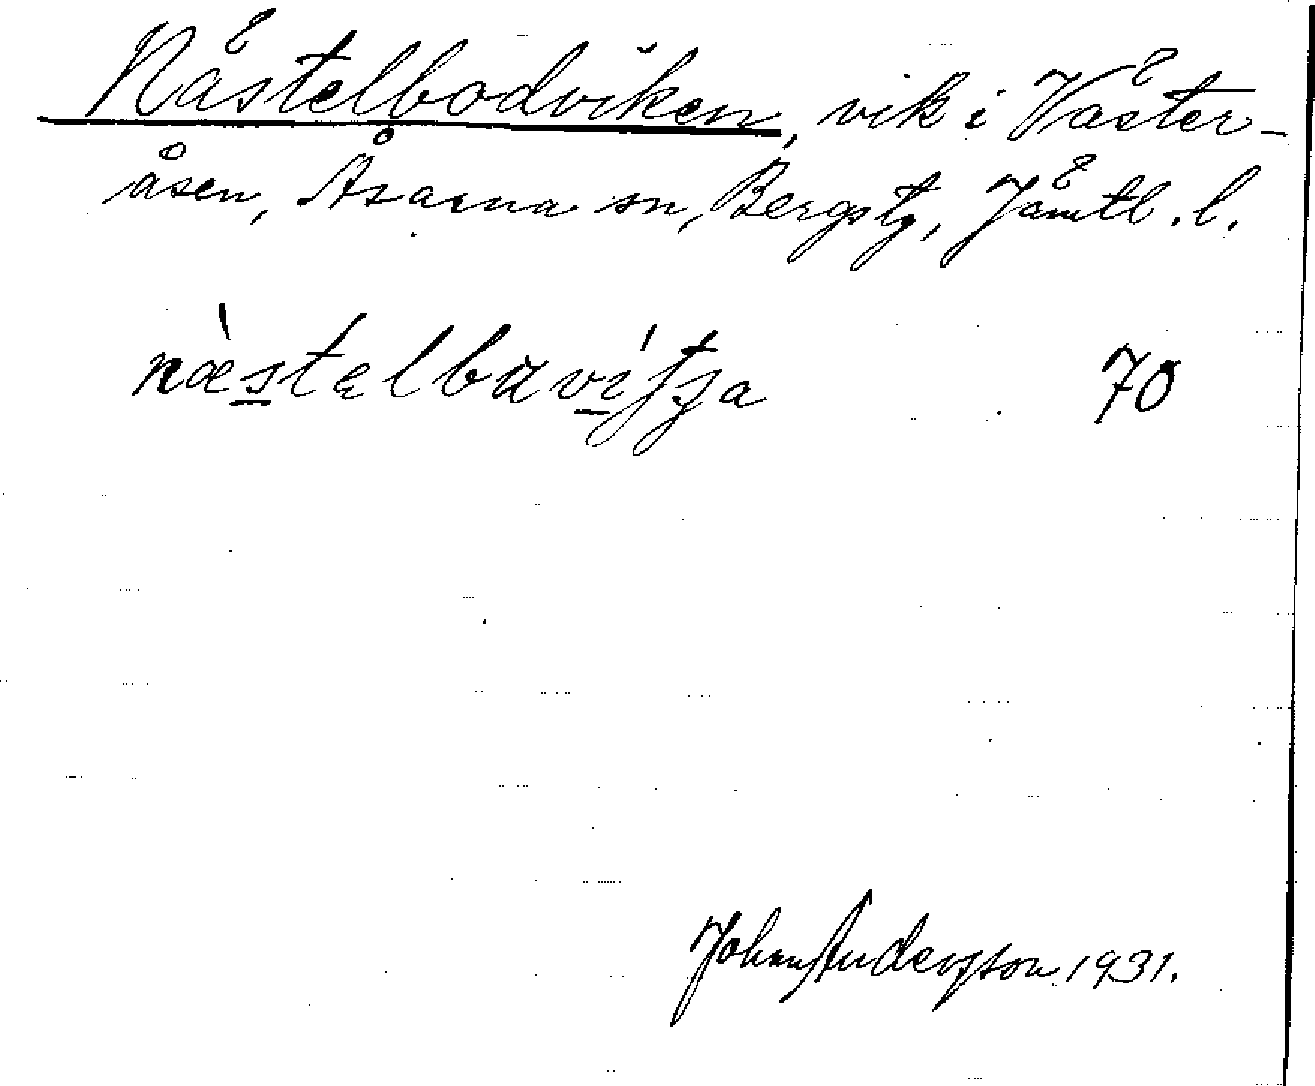 Nästelbodviken, vik i Väster-
åsen, Åsarna sn, Bergs tg, Jämtl. l.
70
Johan Andersson 1931.